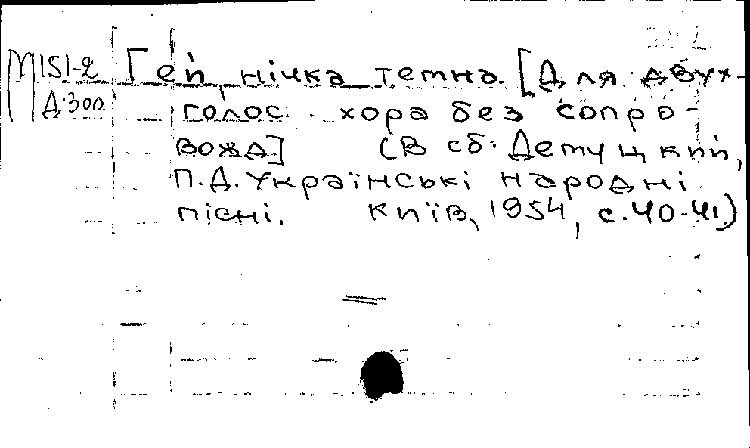 М151-2 Гей, нічка темна. [Для двух-
Д300 голос. хора без сопро-
вожд.] (В сб: Демуцкий,
П.Д. Українські народні
пісні. Київ, 1954, с.40-41.)